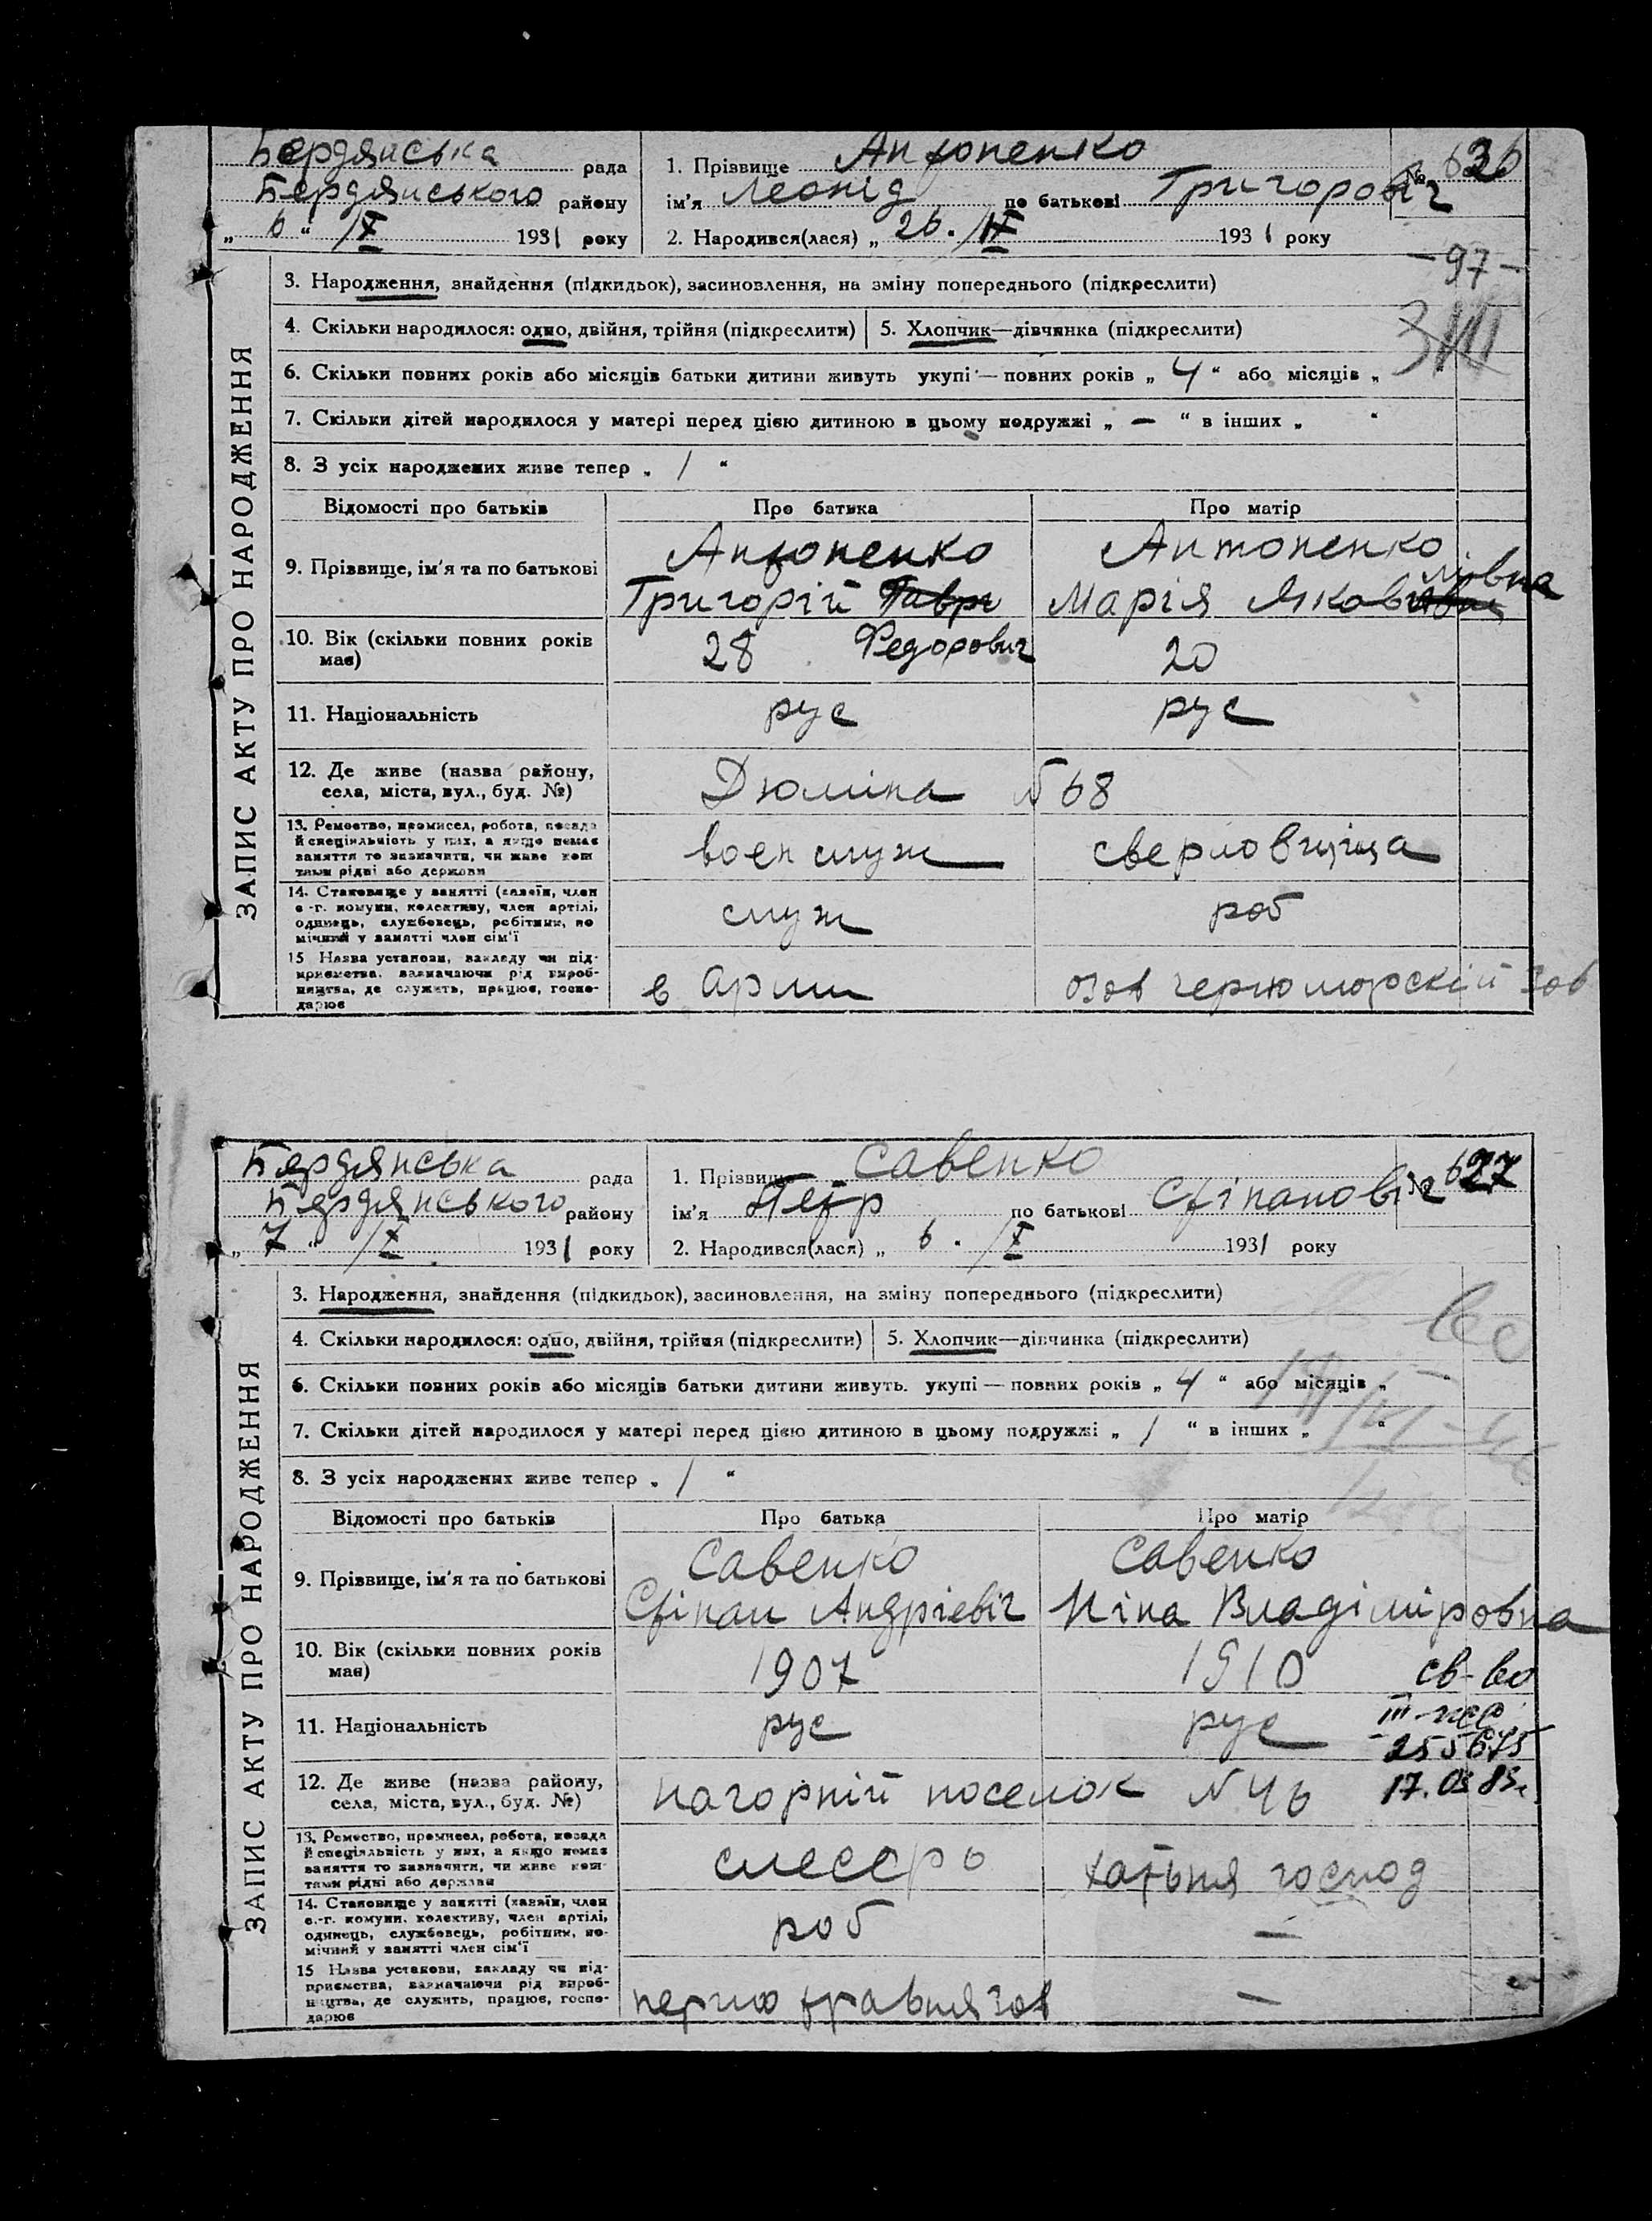 Бердянська рада
Бердянського району
„ 6 “ /X 1931 року
1. Прізвище Антоненко
ім'я Леонід по батькові Григорович
№ 626
2. Народився(лася) „ 26. /IX 1931 року
- 97 -
ЗАПИС АКТУ ПРО НАРОДЖЕННЯ
3. Народження, знайдення (підкидьок), засиновлення, на зміну попереднього (підкреслити)
4. Скільки народилося: одно, двійня, трійня (підкреслити) 5. Хлопчик—дівчинка (підкреслити)
6. Скільки повних років або місяців батьки дитини живуть укупі — повних років „ 4 “ або місяців „
7. Скільки дітей народилося у матері перед цією дитиною в цьому подружжі „ — “ в інших „ “
8. З усіх народжених живе тепер „ 1 “
Відомості про батьків Про батька Про матір
9. Прізвище, ім'я та по батькові
Антоненко
Григорій Гаври
Федорович
Антоненко
Марія Яковлівна
10. Вік (скільки повних років має) 28 20
11. Національність рус рус
12. Де живе (назва району, села, міста, вул., буд. №) Дюміна N 68
13. Ремество, промисел, робота, посада й спеціяльність у них, а якщо немає заняття то зазначити, чи живе коштами рідні або держави
воен служ сверловщица
14. Становище у занятті (хазяїн, член с.-г. комуни, колективу, член артілі, одинець, службовець, робітник, помічний у занятті член сім'ї
служ роб
15 Назва установи, закладу чи підприємства, зазначаючи рід виробництва, де служить, працює, господарює
в Арміи озов черноморскій Зов
Бердянська рада
Бердянського району
„ 7 “ /X 1931 року
1. Прізвище Савенко
ім'я Петр по батькові Стіпановіч
№ 627
2. Народився(лася) „ 6. /X 1931 року
ЗАПИС АКТУ ПРО НАРОДЖЕННЯ
3. Народження, знайдення (підкидьок), засиновлення, на зміну попереднього (підкреслити)
4. Скільки народилося: одно, двійня, трійня (підкреслити) 5. Хлопчик—дівчинка (підкреслити)
6. Скільки повних років або місяців батьки дитини живуть. укупі — повних років „ 4 “ або місяців „
7. Скільки дітей народилося у матері перед цією дитиною в цьому подружжі „ 1 “ в інших „ “
8. З усіх народжених живе тепер „ 1 “
Відомості про батьків Про батька Про матір
9. Прізвище, ім'я та по батькові
Савенко
Стіпан Андрієвіч
Савенко
Ніна Владіміровна
10. Вік (скільки повних років має) 1907 1910
св-во
11. Національність рус рус
17.03.83г.
12. Де живе (назва району, села, міста, вул., буд. №) нагорній поселок N 46
13. Ремество, промисел, робота, посада й спеціяльність у них, а якщо немає заняття то зазначити, чи живе коштами рідні або держави
слесарь хатьня господ
14. Становище у занятті (хазяїн, член с.-г. комуни, колективу, член артілі, одинець, службовець, робітник, помічний у занятті член сім'ї
роб —
15 Назва установи, закладу чи підприємства, зазначаючи рід виробництва, де служить, працює, господарює
перио травня Зов —